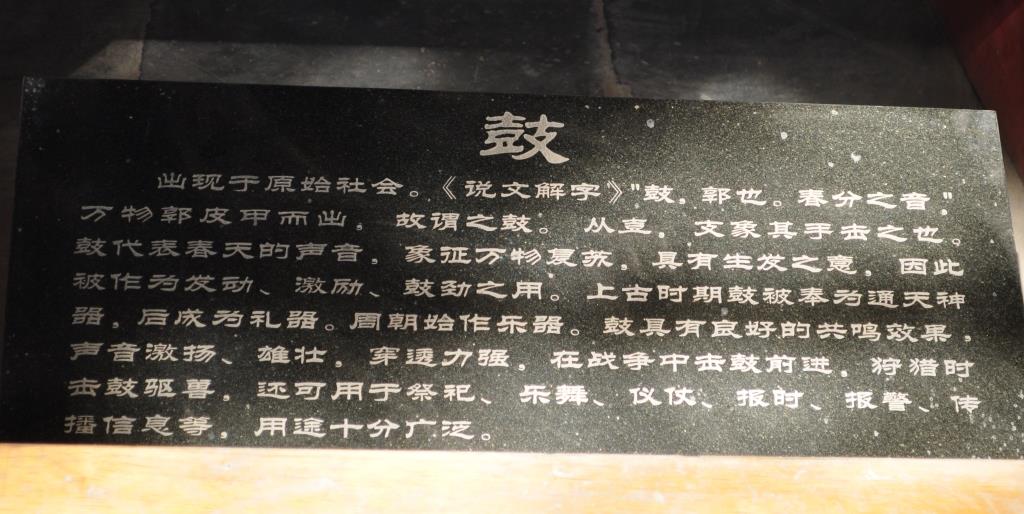 鼓
出现于原始社会。《说文解字》"鼓，郭也。春分之音，"
万物郭皮甲而出，故谓之鼓。从壴，支象其手击之也。
鼓代表春天的声音，象征万物复苏，具有生发之意，因此
被作为发动、激励、鼓劲之用。上古时期鼓被奉为通天神
器，后成为礼器。周朝始作乐器。鼓具有良好的共鸣效果，
声音激扬、雄壮，穿透力强，在战争中击鼓前进，狩猎时
击鼓驱兽，还可用于祭祀、乐舞、仪仗、报时、报警、传
播信息等，用途十分广泛。